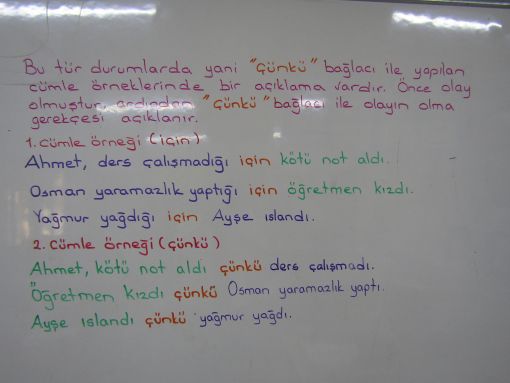 Bu tür durumlarda yani "çünkü" bağlacı ile yapılan
cümle örneklerinde bir açıklama vardır. Önce olay
olmuştur, ardından "çünkü" bağlacı ile olayın olma
gerekçesi açıklanır.
1. cümle örneği (için)
Ahmet, ders çalışmadığı için kötü not aldı.
Osman yaramazlık yaptığı için öğretmen kızdı.
Yağmur yağdığı için Ayşe ıslandı.
2. cümle örneği (çünkü)
Ahmet, kötü not aldı çünkü ders çalışmadı.
Öğretmen kızdı çünkü Osman yaramazlık yaptı.
Ayşe ıslandı çünkü yağmur yağdı.